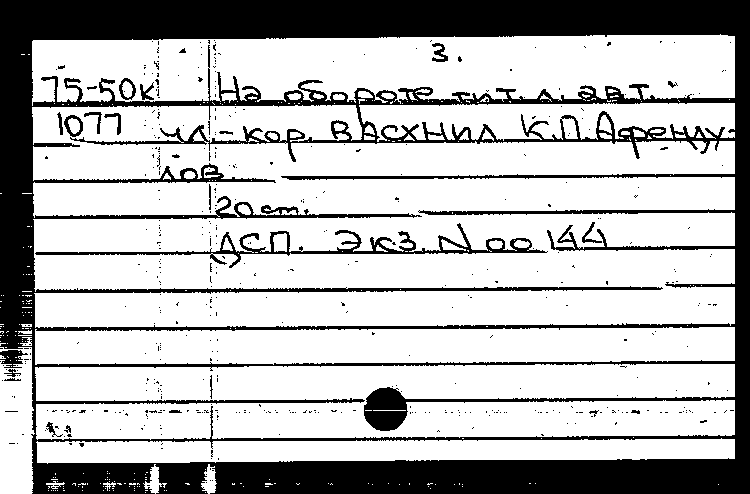 3.
75-50к На обороте тит. л. авт.:
1077 чл.-кор. ВАСХНИЛ К.П. Афенду-
лов.
20 см.
ДСП. Экз. N 00144